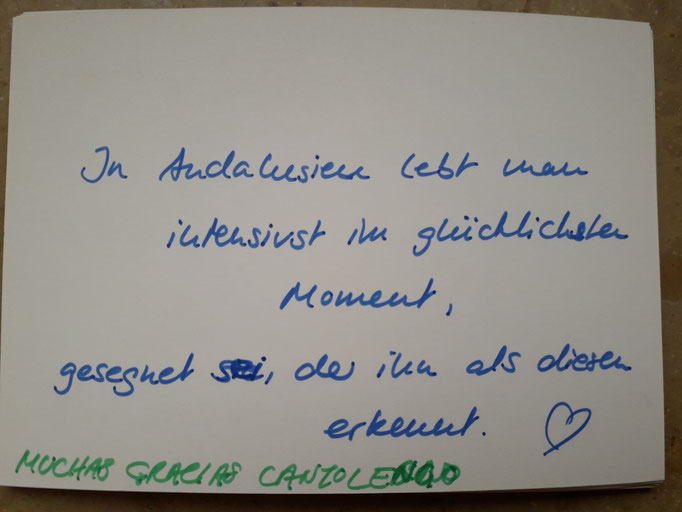 In Andalusien lebt man
intensivst im glücklichsten
Moment,
gesegnet sei, der ihn als diesen
erkennt.
MUCHAS GRACIAS